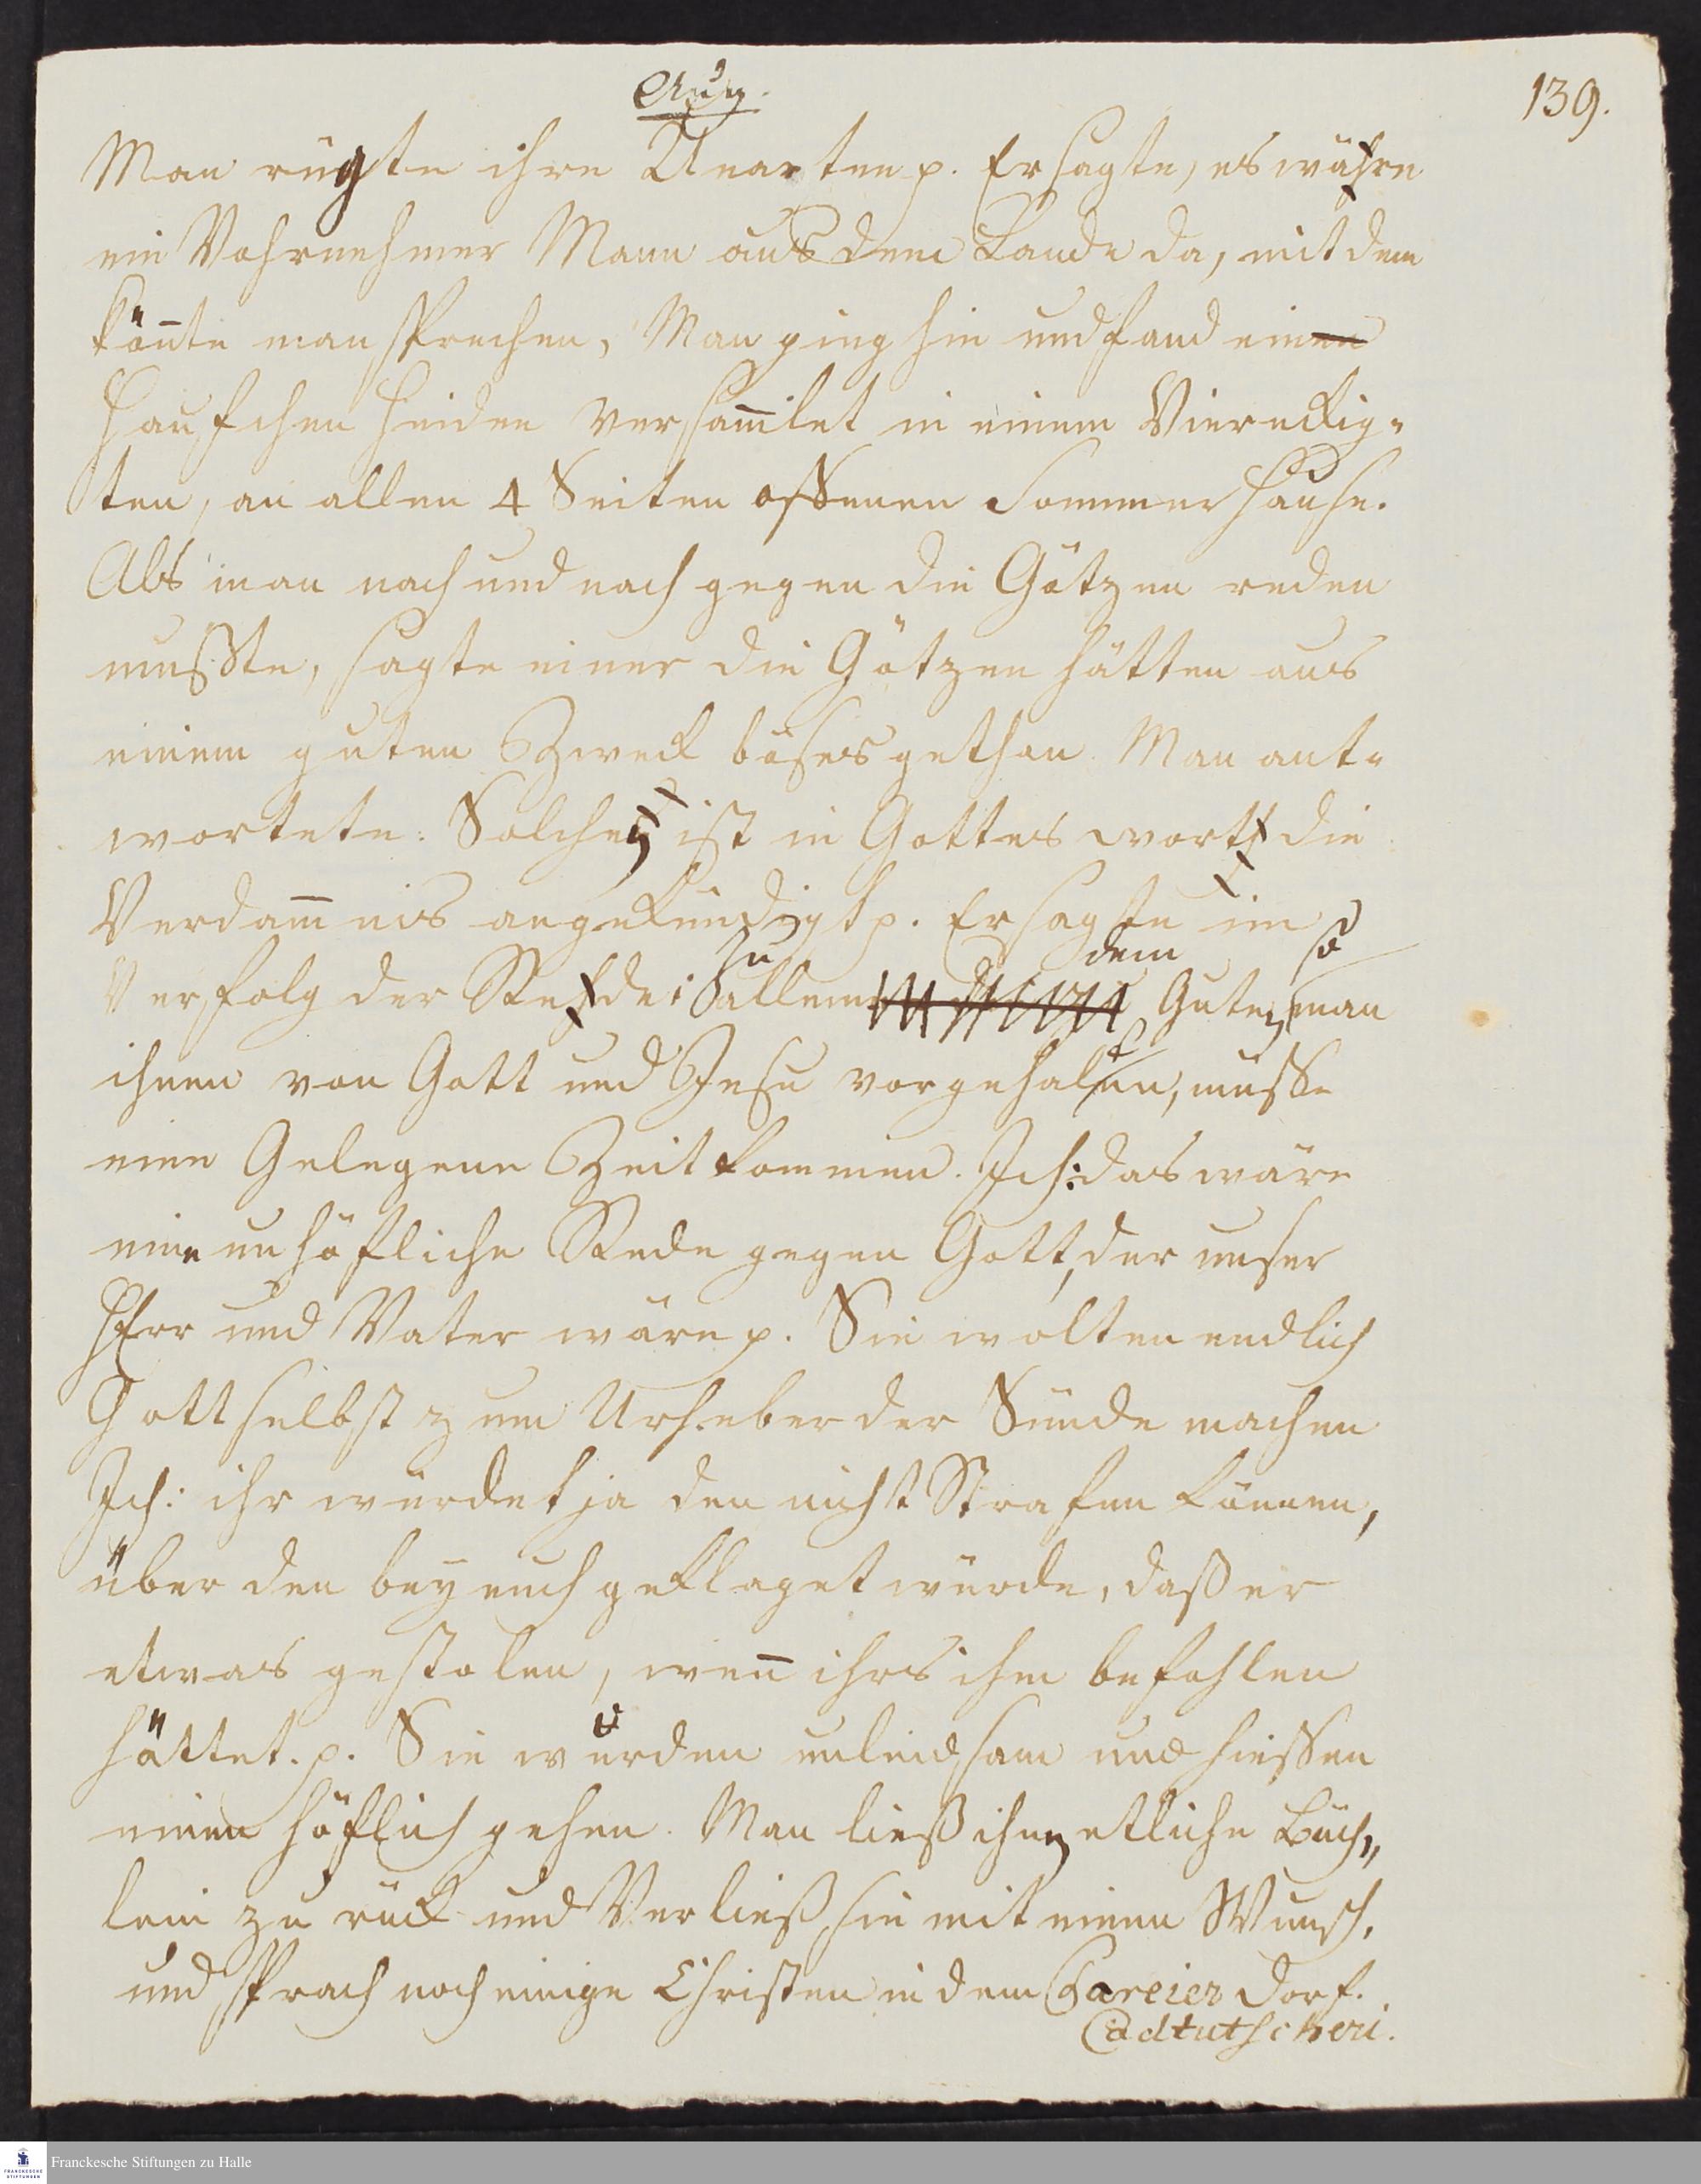 Aug.
139.
Man rügte ihre Unarten p. Er sagte, es währe
ein Vohrnehmer Mann aus dem Lande da, mit dem
köñte man sprechen, Man ging hin und fand einen
Häufchen Heiden versam̃let in einem Viereckig-
ten, an allen 4 Seiten offenen Sommerhause.
Als man nach und nach gegen die Götzen reden
mußte, sagte einer die Götzen hätten aus
einem guten Zweck böses gethan. Man ant-
wortete: Solchen ist in Gottes wort die
Verdam̃nis angekündigt p. Er sagte im
Verfolg der Rede: zu allem dem Guten, so man
ihnen von Gott und Jesu vorgehalten, müsse
eine Gelegene Zeit kommen. Ich: das wäre
eine unhöfliche Rede gegen Gott, der unser
HErr und Vater wäre p. Sie wolten endlich
Gott selbst zum Urheber der Sünde machen
Ich: ihr würdet ja den nicht Strafen können,
über den bey euch geklaget würde, daß er
etwas gestolen, weñ ihrs ihm befohlen
hättet. p. Sie wurden unleidsam und hiessen
einen höflich gehen. Man ließ ihnen etliche Büch„
lein zu rück und Verließ sie mit einem Wunsch,
und sprach noch einige Christen in dem Careier Dorf.
Cadtutscheri.
Franckesche Stiftungen zu Halle